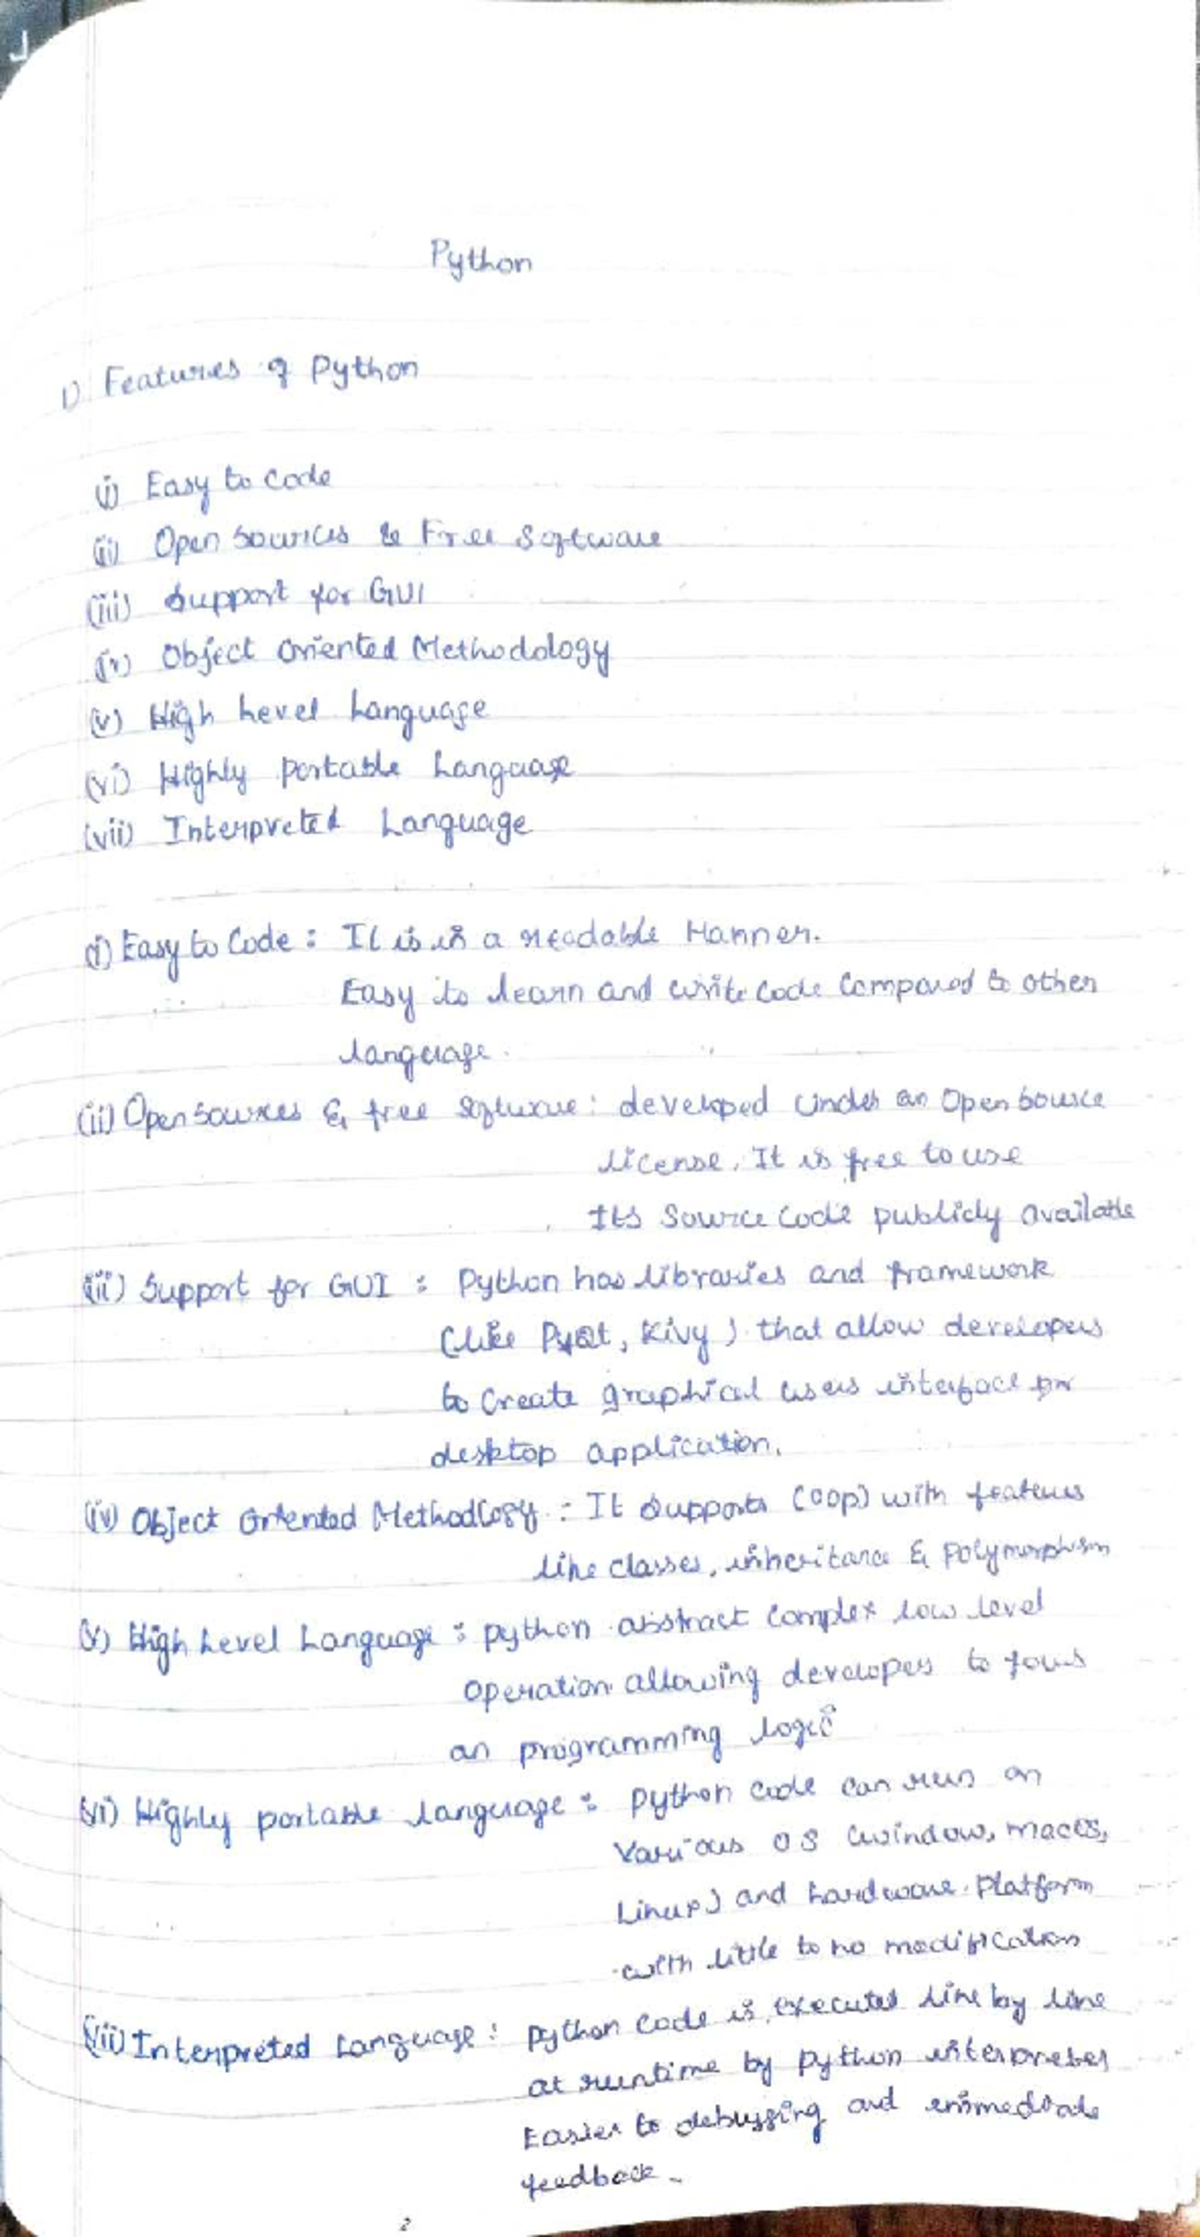 Python
1) Features of Python
(i) Easy to code
(ii) Open Sources & Free Software
(iii) Support for GUI
(iv) Object Oriented Methodology
(v) High Level Language
(vi) Highly Portable Language
(vii) Interpreted Language
(i) Easy to Code : It is in a readable Manner.
Easy to learn and write code Compared to other
language.
(ii) Open Sources & free software : developed under an Open Source
license. It is free to use
Its Source Code publicly available
(iii) Support for GUI : Python has libraries and framework
(like PyQt, Kivy) that allow developers
to Create graphical users interface for
desktop application.
(iv) Object Oriented Methodlogy : It Supports (OOP) with features
like classes, inheritance & Polymorphism
(v) High Level Language : python abstract Complex low level
Operation allowing developers to focus
on programming logic
(vi) Highly portable language : Python code can run on
Various OS (window, macos,
Linux) and hardware Platform
with little to no modification
(vii) Interpreted Language : Python Code is executed line by line
at runtime by python interpreter
Easier to debugging and immediate
feedback.
2